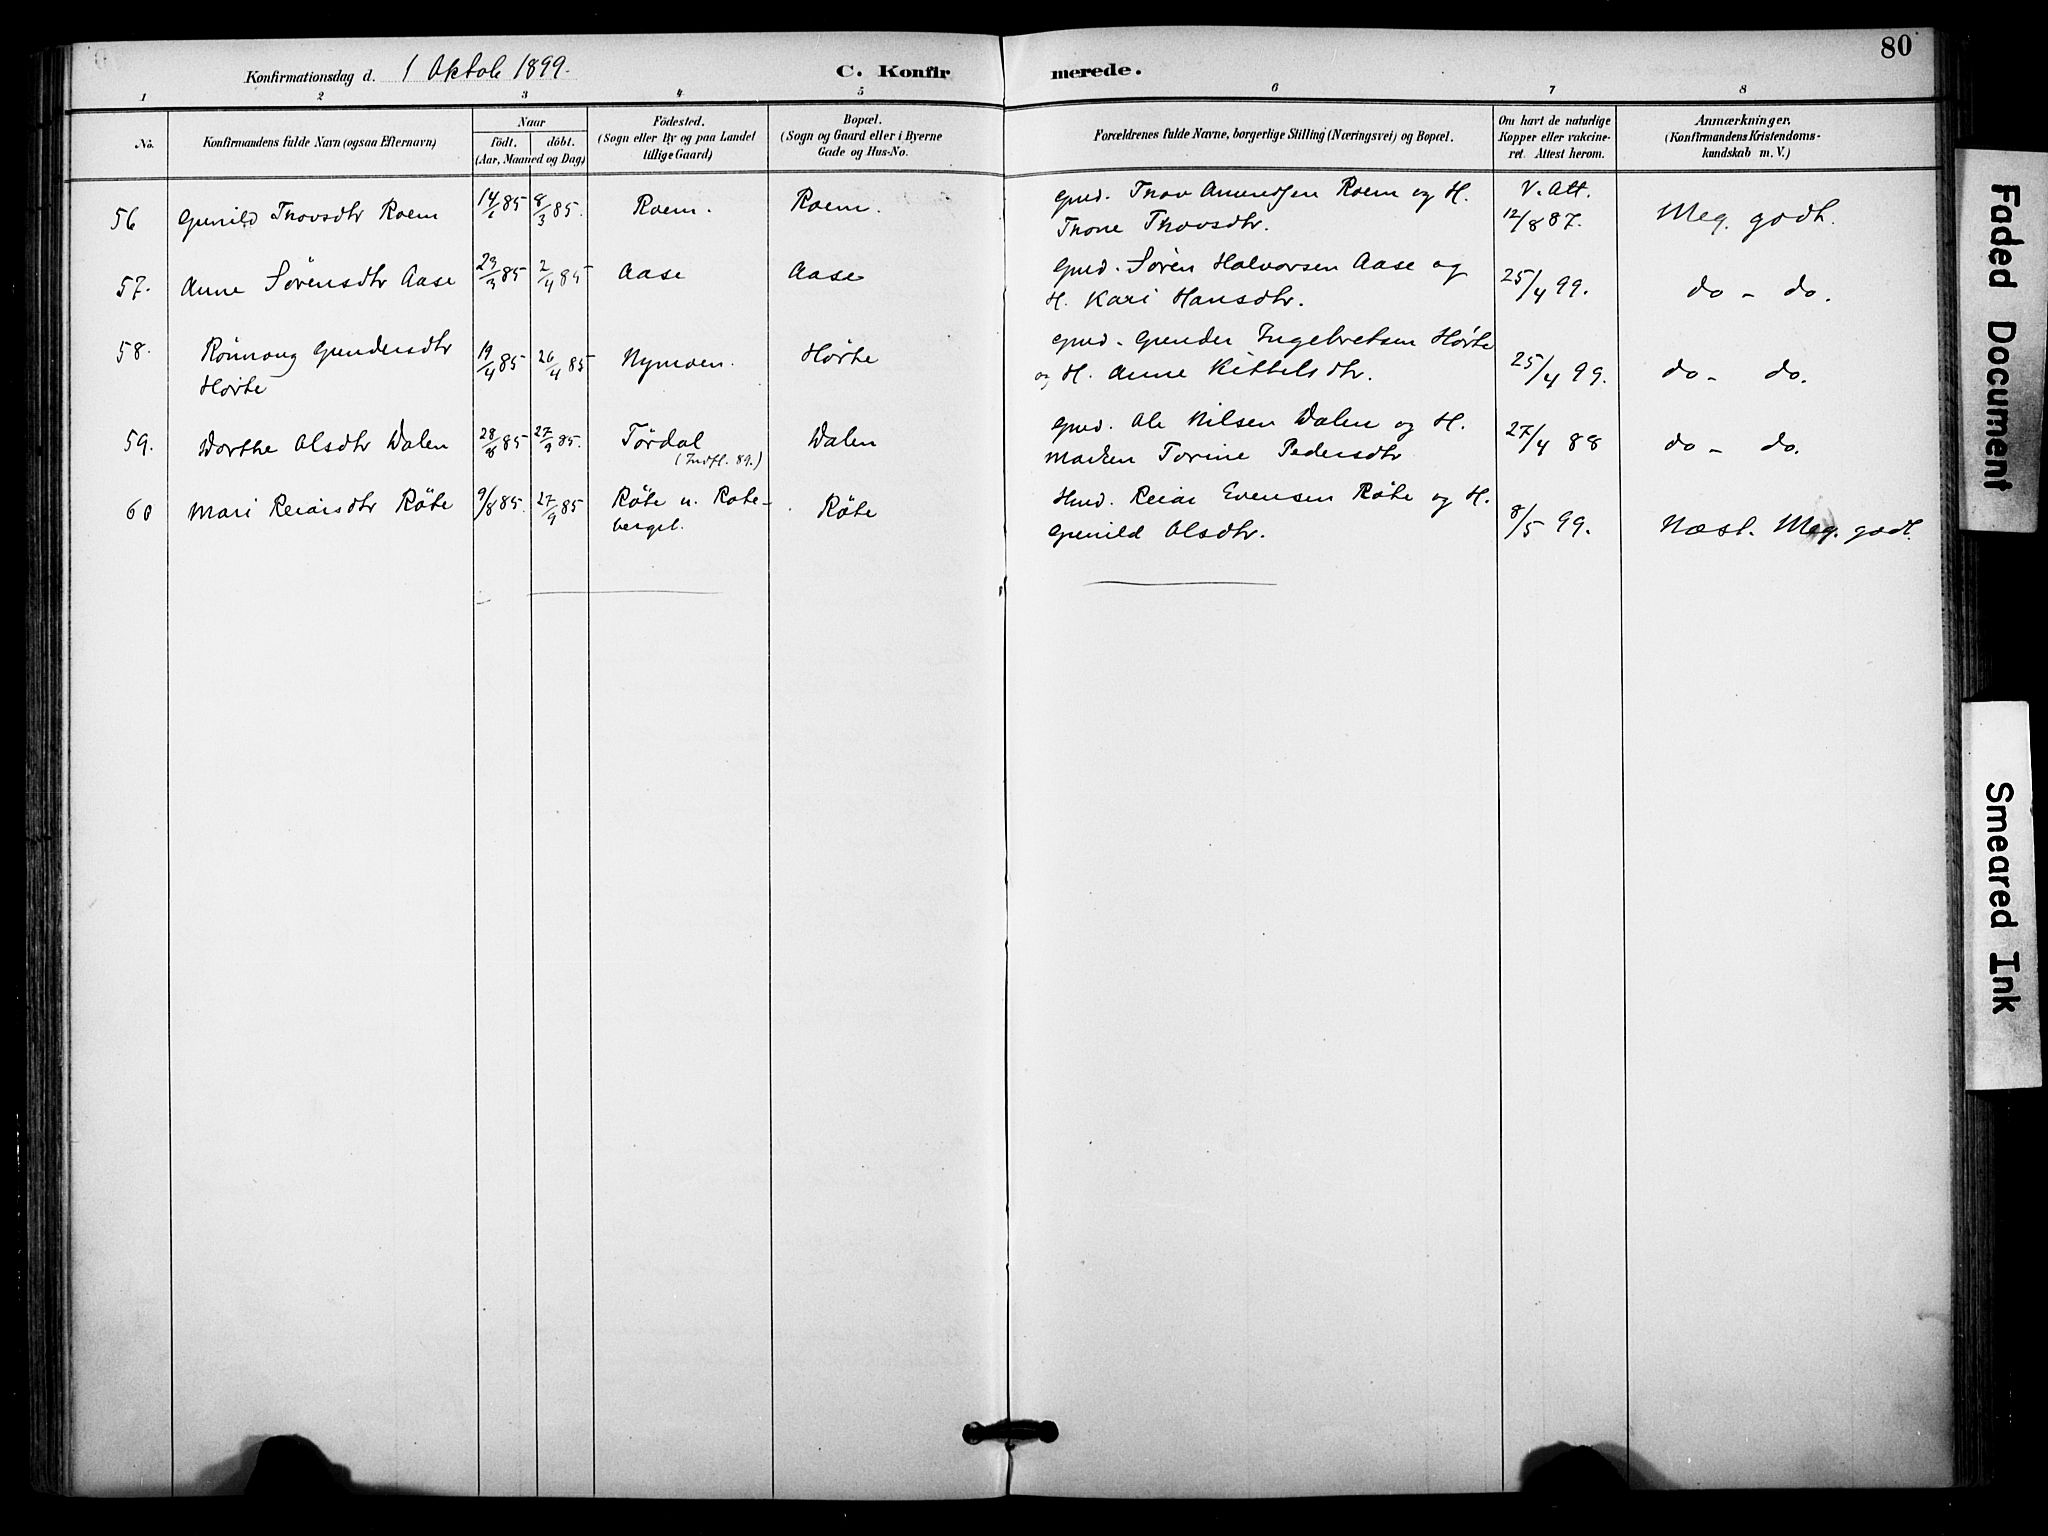 80
Konfirmationsdag d. 1 Oktob 1899.
C. Konfirmerede.
1 2 3 4 5 6 7 8
No.
Konfirmandens fulde Navn (ogsaa Efternavn)
Naar
födt. döbt.
(Aar, Maaned og Dag)
Födested.
(Sogn eller By og paa Landet
tillige Gaard)
Bopæl.
(Sogn og Gaard eller i Byerne
Gade og Hus-No.
Forældrenes fulde Navne, borgerlige Stilling (Næringsvei) og Bopæl.
Om havt de naturlige
Kopper eller vakcine-
ret. Attest herom.
Anmærkninger.
(Konfirmandens Kristendoms-
kundskab m. V.)
56 Gunild Thovsdtr Roem 14/1 85 8/3 85. Roem. Roem. Gmd. Thov Amundsen Roem og H. V. Att.
Thone Thovsdtr. 12/8 87. Meg. godt.
57. Anne Sørensdtr Aase 29/3 85 2/4 85 Aase Aase Gmd. Søren Halvorsen Aase og
H. Kari Hansdtr. 25/4 99. do - do.
58. Rönnoug Gundersdtr 19/4 85 26/4 85 Nymoen. Hörte Gmd. Gunder Ingebretsen Hörte
Hörte og H. Anne Kittelsdtr. 25/4 99. do - do.
59. Dorthe Olsdtr Dalen 28/8 85 27/9 85. Tørdal Dalen Gmd. Ole Nilsen Dalen og H.
(Indfl. 89.) Marken Torine Pedersdtr 27/4 88 do - do.
60 Mari Reiarsdtr Röte 9/8 85. 27/9 85 Röte u. Rote- Röte Hmd. Reiar Evensen Röte og H.
berget. Gunild Olsdtr. 8/5 99. Næst. Meg. godt.
Faded Document
Smeared Ink